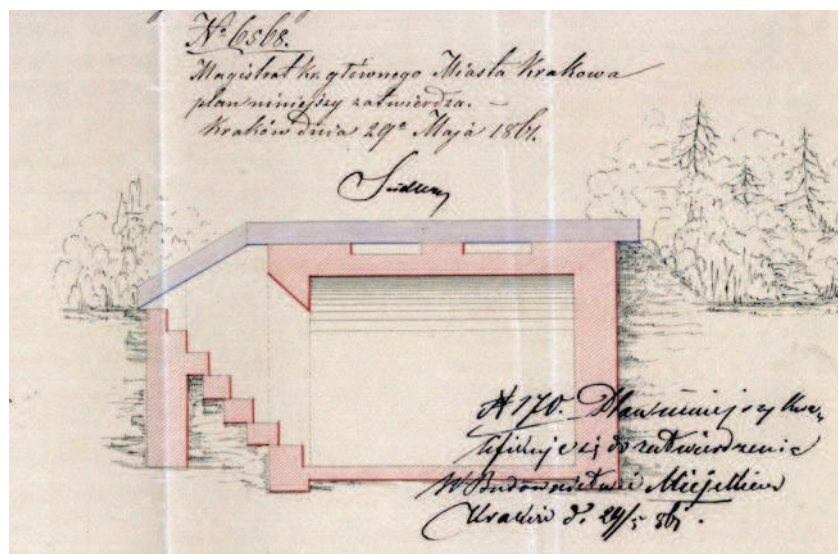 No 6568.
Magistrat kr. głównego Miasta Krakowa
plan niniejszy zatwierdza. —
Kraków dnia 29o Maja 1861.
N 170. Plan niniejszy kwa-
lifikuje się do zatwierdzenia
W Budownictwie Miejskiem
Kraków d. 24/5 861.